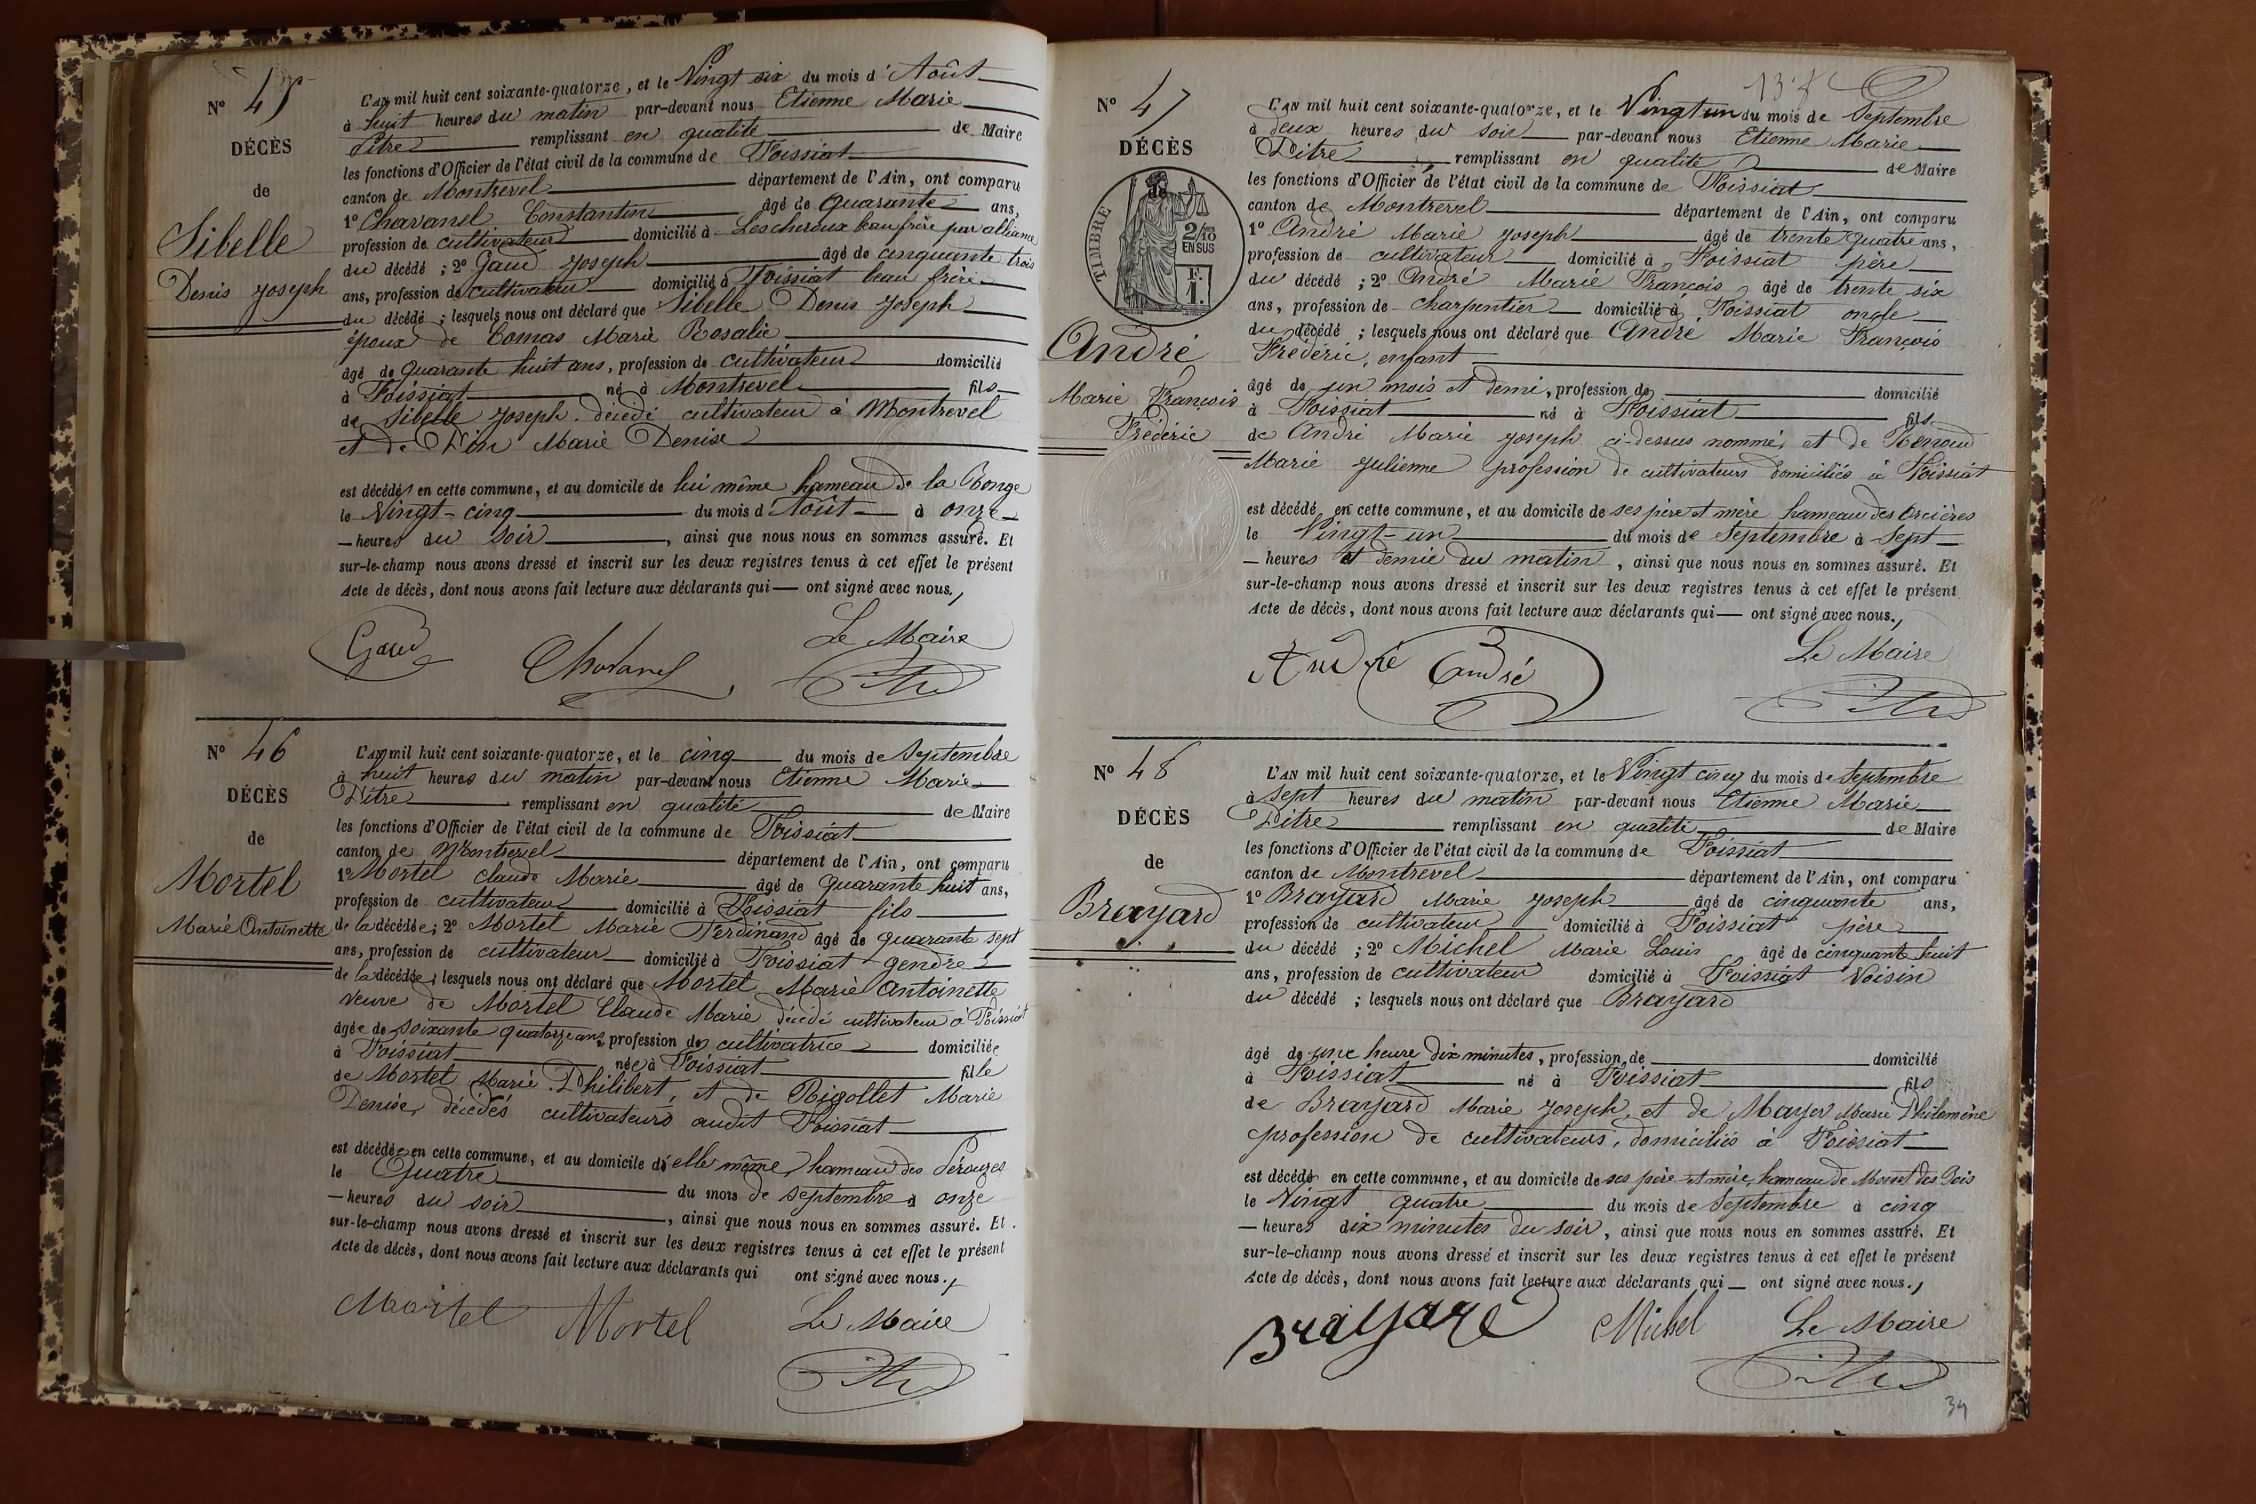 N° 45
DÉCÈS
de
Sibelle
Denis Joseph
L'AN mil huit cent soixante-quatorze, et le Vingt six du mois d'Août
à huit heures du matin par-devant nous Etienne Marie
Pitre remplissant en qualité de Maire
les fonctions d'Officier de l'état civil de la commune de Foissiat
canton de Montrevel département de l'Ain, ont comparu
1° Chavanel Constantin âgé de quarante ans,
profession de cultivateur domicilié à Lescheroux beau frère par alliance
du décédé ; 2° Gaud Joseph âgé de cinquante trois
ans, profession de cultivateur domicilié à Foissiat beau frère
du décédé ; lesquels nous ont déclaré que Sibelle Denis Joseph
époux de Comas Marie Rosalie
âgé de quarante huit ans, profession de cultivateur domicilié
à Foissiat né à Montrevel fils
de Sibelle Joseph décédé cultivateur à Montrevel
et de Marie Denise
est décédé en cette commune, et au domicile de lui même hameau de la
le Vingt-cinq du mois d'Août à onze
heures du soir, ainsi que nous nous en sommes assuré. Et
sur-le-champ nous avons dressé et inscrit sur les deux registres tenus à cet effet le présent
Acte de décès, dont nous avons fait lecture aux déclarants qui — ont signé avec nous.
Gaud Chavanel Le Maire
Pitre
N° 46
DÉCÈS
de
Mortel
Marie Antoinette
L'AN mil huit cent soixante-quatorze, et le cinq du mois de Septembre
à huit heures du matin par-devant nous Etienne Marie
Pitre remplissant en qualité de Maire
les fonctions d'Officier de l'état civil de la commune de Foissiat
canton de Montrevel département de l'Ain, ont comparu
1° Mortel Claude Marie âgé de quarante huit ans,
profession de cultivateur domicilié à Foissiat fils
de la décédée ; 2° Mortel Marie Ferdinand âgé de quarante sept
ans, profession de cultivateur domicilié à Foissiat gendre
de la décédée ; lesquels nous ont déclaré que Mortel Marie Antoinette
veuve de Mortel Claude Marie décédé cultivateur à Foissiat
âgée de soixante quatorze ans, profession de cultivatrice domiciliée
à Foissiat née à Foissiat fille
de Mortel Marie Philibert, et de Rigollet Marie
Denise, décédés cultivateurs audit Foissiat
est décédée en cette commune, et au domicile d'elle même, hameau des Pérouzes
le Quatre du mois de septembre à onze
heures du soir, ainsi que nous nous en sommes assuré. Et
sur-le-champ nous avons dressé et inscrit sur les deux registres tenus à cet effet le présent
Acte de décès, dont nous avons fait lecture aux déclarants qui ont signé avec nous.
Mortel Mortel Le Maire
Pitre
N° 47
DÉCÈS
de
TIMBRE
2/10
EN SUS
F.
1.
André
Marie François
Frédéric
L'AN mil huit cent soixante-quatorze, et le Vingt un du mois de Septembre
à deux heures du soir par-devant nous Etienne Marie
Pitre remplissant en qualité de Maire
les fonctions d'Officier de l'état civil de la commune de Foissiat
canton de Montrevel département de l'Ain, ont comparu
1° André Marie Joseph âgé de trente quatre ans,
profession de cultivateur domicilié à Foissiat père
du décédé ; 2° André Marie François âgé de trente six
ans, profession de charpentier domicilié à Foissiat oncle
du décédé ; lesquels nous ont déclaré que André Marie François
Frédéric, enfant
âgé de un mois et demi, profession de domicilié
à Foissiat né à Foissiat fils
de André Marie Joseph ci-dessus nommé, et de Renoud
Marie Julienne profession de cultivateurs domiciliés à Foissiat
est décédé en cette commune, et au domicile de ses père et mère hameau des Orcières
le Vingt-un du mois de Septembre à Sept
heures et demie du matin, ainsi que nous nous en sommes assuré. Et
sur-le-champ nous avons dressé et inscrit sur les deux registres tenus à cet effet le présent
Acte de décès, dont nous avons fait lecture aux déclarants qui — ont signé avec nous.
André André Le Maire
Pitre
N° 48
DÉCÈS
de
Brayard
L'AN mil huit cent soixante-quatorze, et le Vingt cinq du mois de Septembre
à sept heures du matin par-devant nous Etienne Marie
Pitre remplissant en qualité de Maire
les fonctions d'Officier de l'état civil de la commune de Foissiat
canton de Montrevel département de l'Ain, ont comparu
1° Brayard Marie Joseph âgé de cinquante ans,
profession de cultivateur domicilié à Foissiat père
du décédé ; 2° Michel Marie Louis âgé de cinquante huit
ans, profession de cultivateur domicilié à Foissiat Voisin
du décédé ; lesquels nous ont déclaré que Brayard
âgé de une heure dix minutes, profession de domicilié
à Foissiat né à Foissiat fils
de Brayard Marie Joseph, et de Mayer Marie Philomène
profession de cultivateurs, domiciliés à Foissiat
est décédé en cette commune, et au domicile de ses père et mère, hameau de des Bois
le Vingt quatre du mois de Septembre à cinq
heures dix minutes du soir, ainsi que nous nous en sommes assuré. Et
sur-le-champ nous avons dressé et inscrit sur les deux registres tenus à cet effet le présent
Acte de décès, dont nous avons fait lecture aux déclarants qui — ont signé avec nous.
Brayard Michel Le Maire
Pitre
39